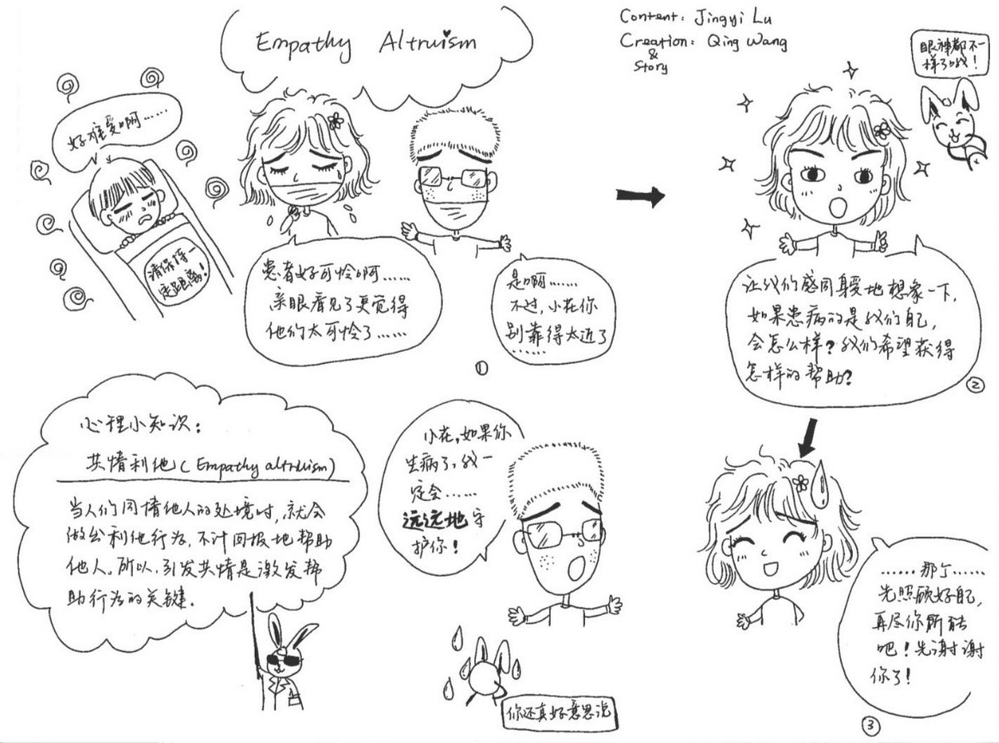 Empathy Altruism
Content: Jingyi Lu
Creation: Qing Wang
&
Story
好难受啊……
请保持一
定距离!
患者好可怜啊……
亲眼看见了更觉得
他们太可怜了……
是啊……
不过,小在你
别靠得太近了
……
①
眼神都不一
样了哦!
让我们感同身受地想象一下,
如果患病的是我们自己,
会怎么样?我们希望获得
怎样的帮助?
②
心理小知识:
共情利他(Empathy altruism)
当人们同情他人的处境时,就会
做出利他行为,不计回报地帮助
他人。所以,引发共情是激发帮
助行为的关键.
小在,如果你
生病了,我一
定会……
远远地守
护你!
你还真好意思说
……那个……
先照顾好自己,
再尽你所能
吧!先谢谢
你了!
③